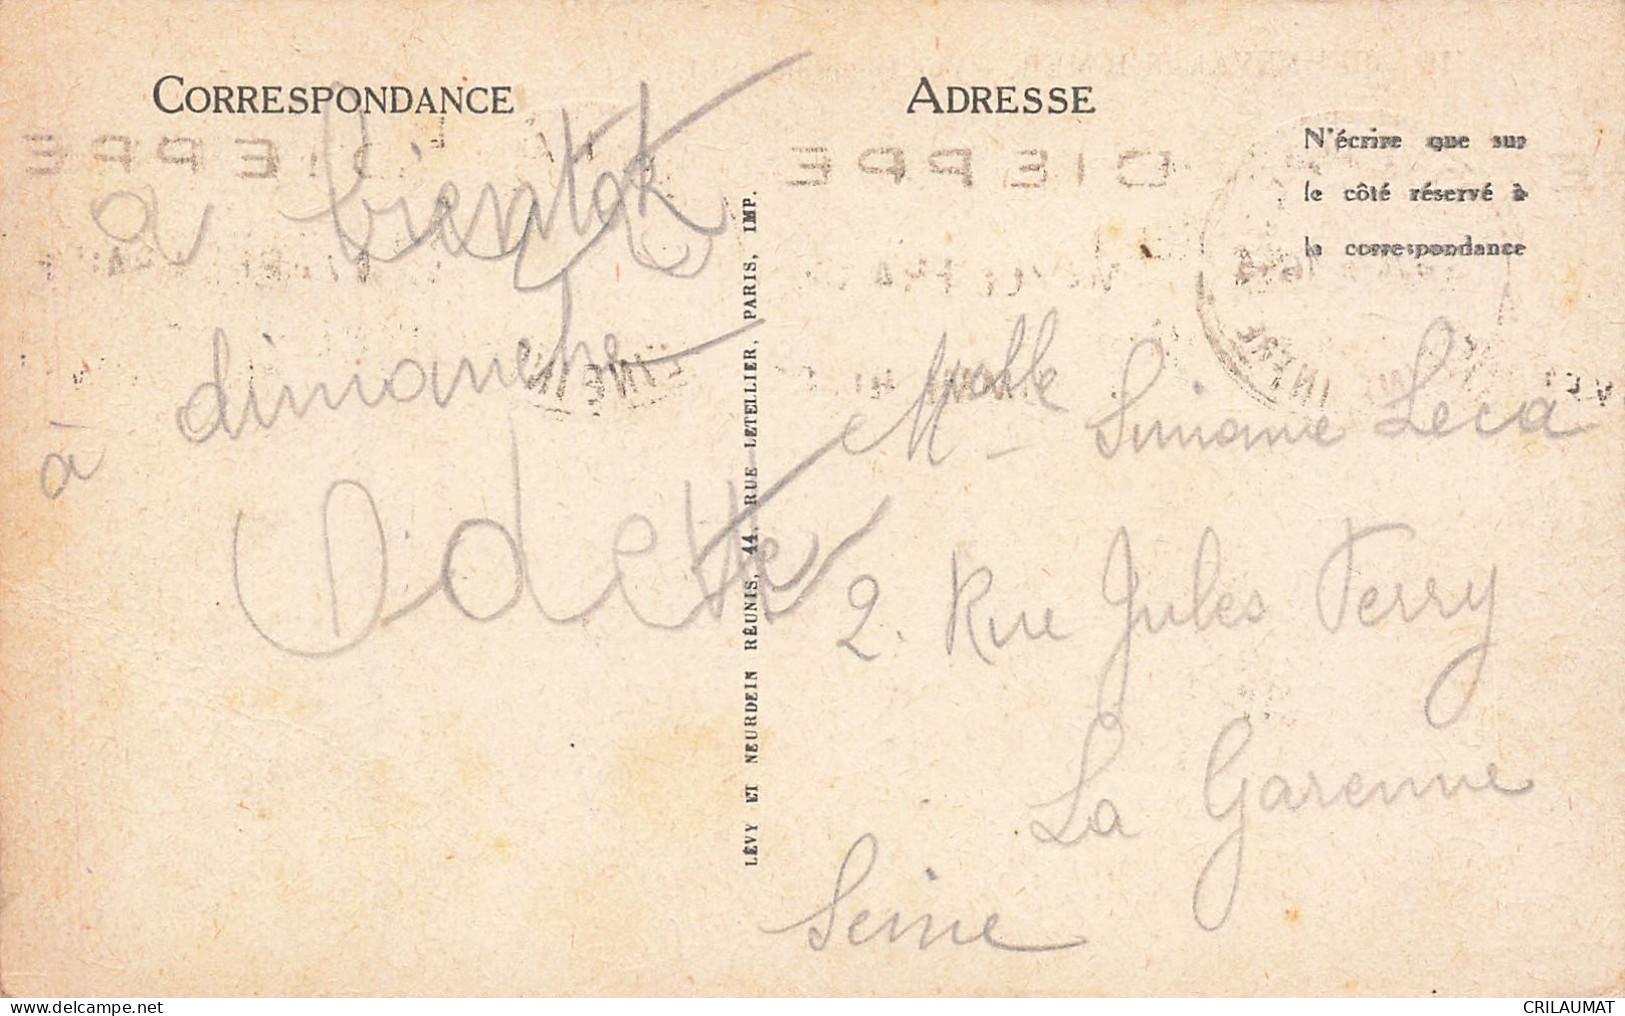 CORRESPONDANCE
a bientot
à dimanche
Odette
LÉVY ET NEURDEIN RÉUNIS, 44, RUE LETELLIER, PARIS, IMP.
ADRESSE
N'écrire que sur
le côté réservé à
la correspondance
Melle Simone Leca
2. Rue Jules Ferry
La Garenne
Seine
DIEPPE
DIEPPE
www.delcampe.net
CRILAUMAT